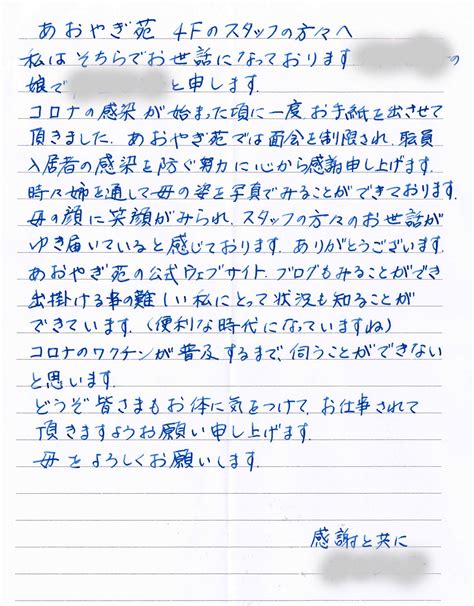 あおやぎ苑 4Fのスタッフの方々へ
私はそちらでお世話になっております の
娘で と申します.
コロナの感染が始まった頃に一度お手紙を出させて
頂きました. あおやぎ苑では面会を制限され、職員
入居者の感染を防ぐ努力に心から感謝申し上げます.
時々姉を通して母の姿を写真でみることができております.
母の顔に笑顔がみられ、スタッフの方々のお世話が
ゆき届いていると感じております. ありがとうございます.
あおやぎ苑の公式ウェブサイト、ブログもみることができ
出掛ける事の難しい私にとって状況も知ることが
できています. (便利な時代になっていますね)
コロナのワクチンが普及するまで、伺うことができない
と思います.
どうぞ皆さまもお体に気をつけて、お仕事されて
頂きますようお願い申し上げます.
母をよろしくお願いします.
感謝と共に